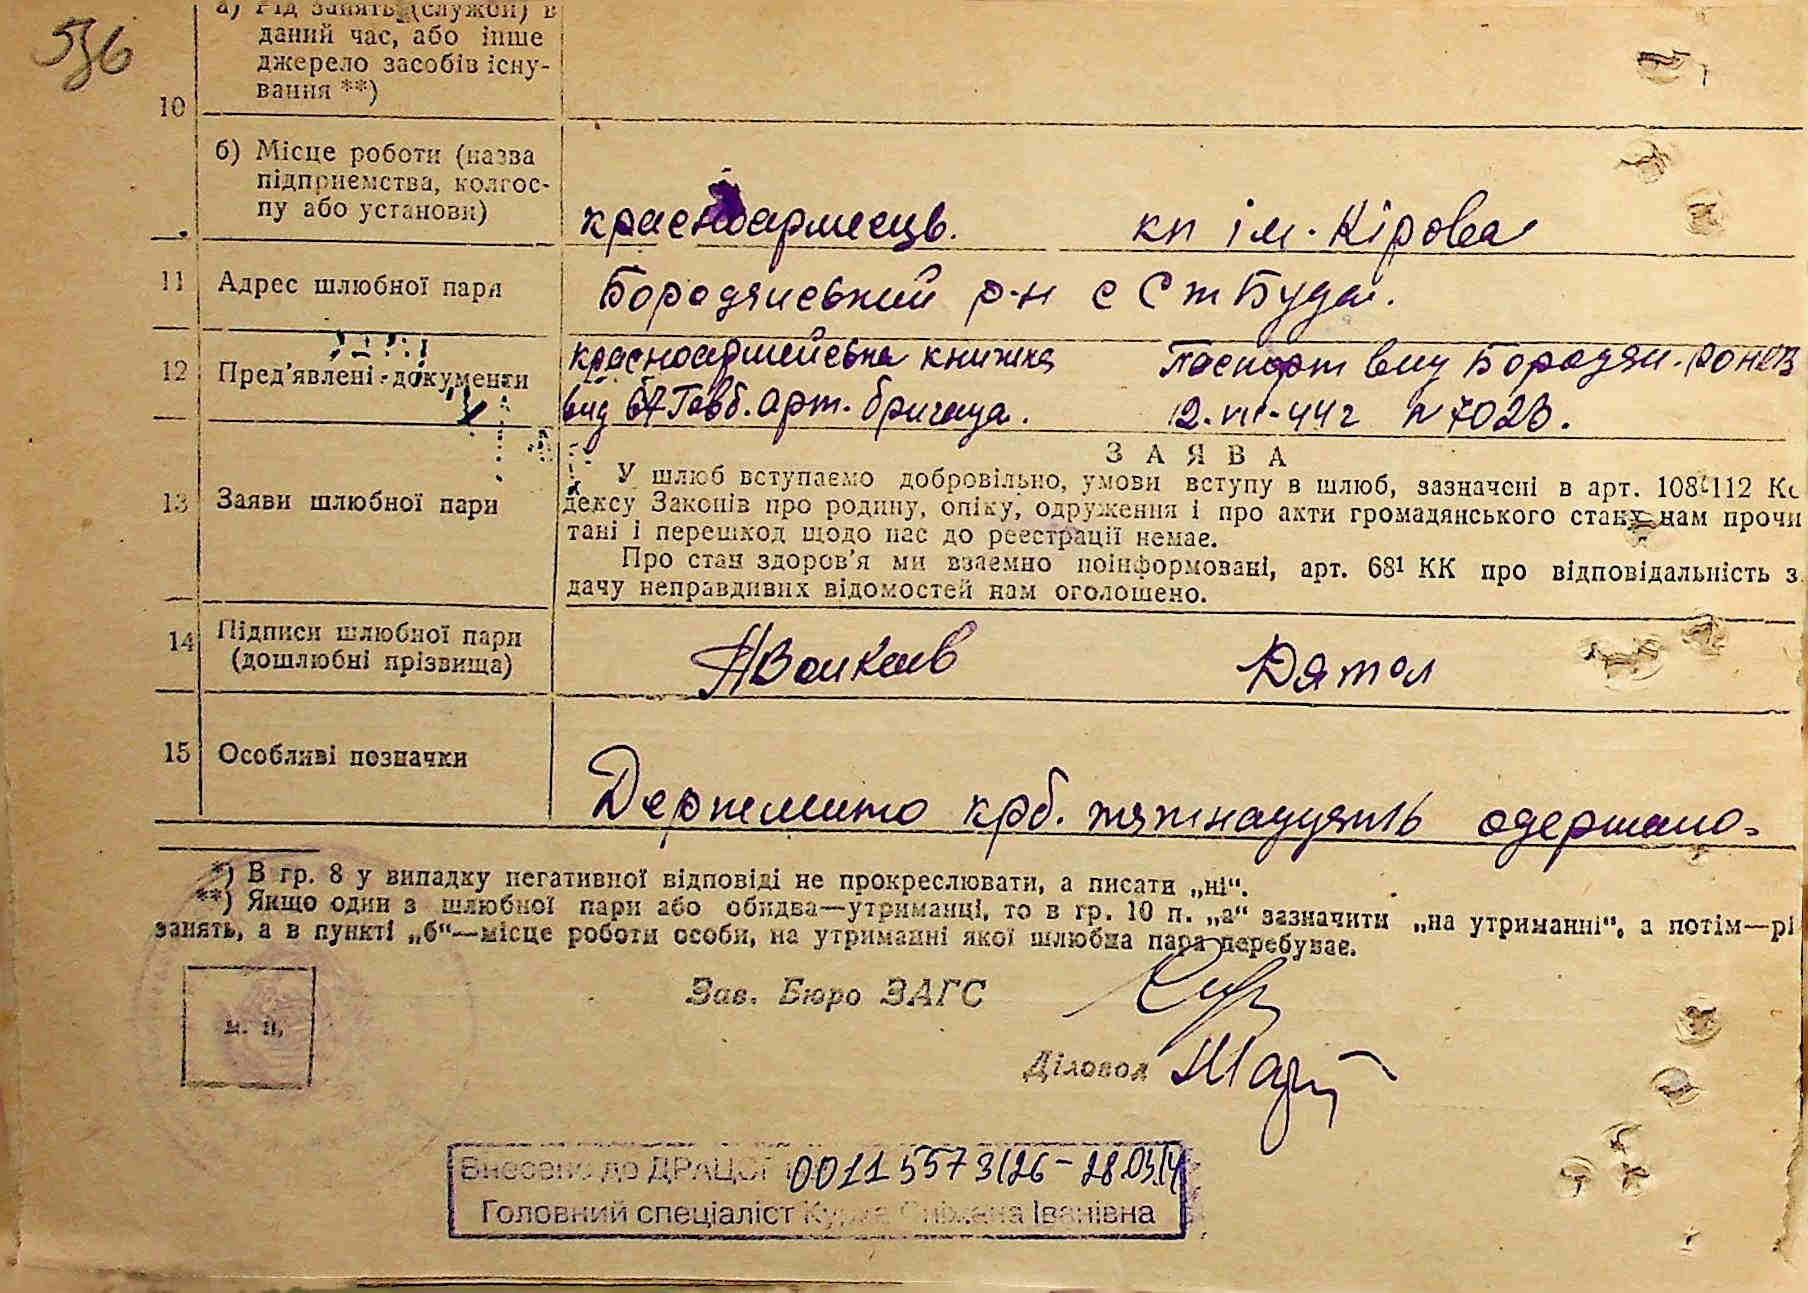 556
а) Рід занять (служби) в
даний час, або інше
джерело засобів існу-
вання **)
10
б) Місце роботи (назва
підприємства, колгос-
пу або установи)
красноармеець. кп ім. Кірова
11 Адрес шлюбної пари
Бородянський р-н с Ст Буда.
12 Пред'явлені документи
красноармейська книжка
вид 67 Гавб. арт. бригада.
Паспорт вид Бородян. РОНКВ
12.VII-44 г N 7023.
13 Заяви шлюбної пари
ЗАЯВА
У шлюб вступаємо добровільно, умови вступу в шлюб, зазначені в арт. 108-112 Ко
дексу Законів про родину, опіку, одруження і про акти громадянського стану нам прочи
тані і перешкод щодо нас до реєстрації немає.
Про стан здоров'я ми взаємно поінформовані, арт. 68¹ КК про відповідальність з
дачу неправдивих відомостей нам оголошено.
14 Підписи шлюбної пари
(дошлюбні прізвища)
Дятол
15 Особливі позначки
Держмито крб. пятнадцять одержано.
*) В гр. 8 у випадку негативної відповіді не прокреслювати, а писати „ні“.
**) Якщо один з шлюбної пари або обидва—утриманці, то в гр. 10 п. „а“ зазначити „на утриманні“, а потім—рі
занять, а в пункті „б“—місце роботи особи, на утриманні якої шлюбна пара перебуває.
м. п.
Зав. Бюро ЗАГС
Діловод
Внесено до ДРАЦСГ 00115573126 - 28.03.14
Головний спеціаліст Сніжана Іванівна